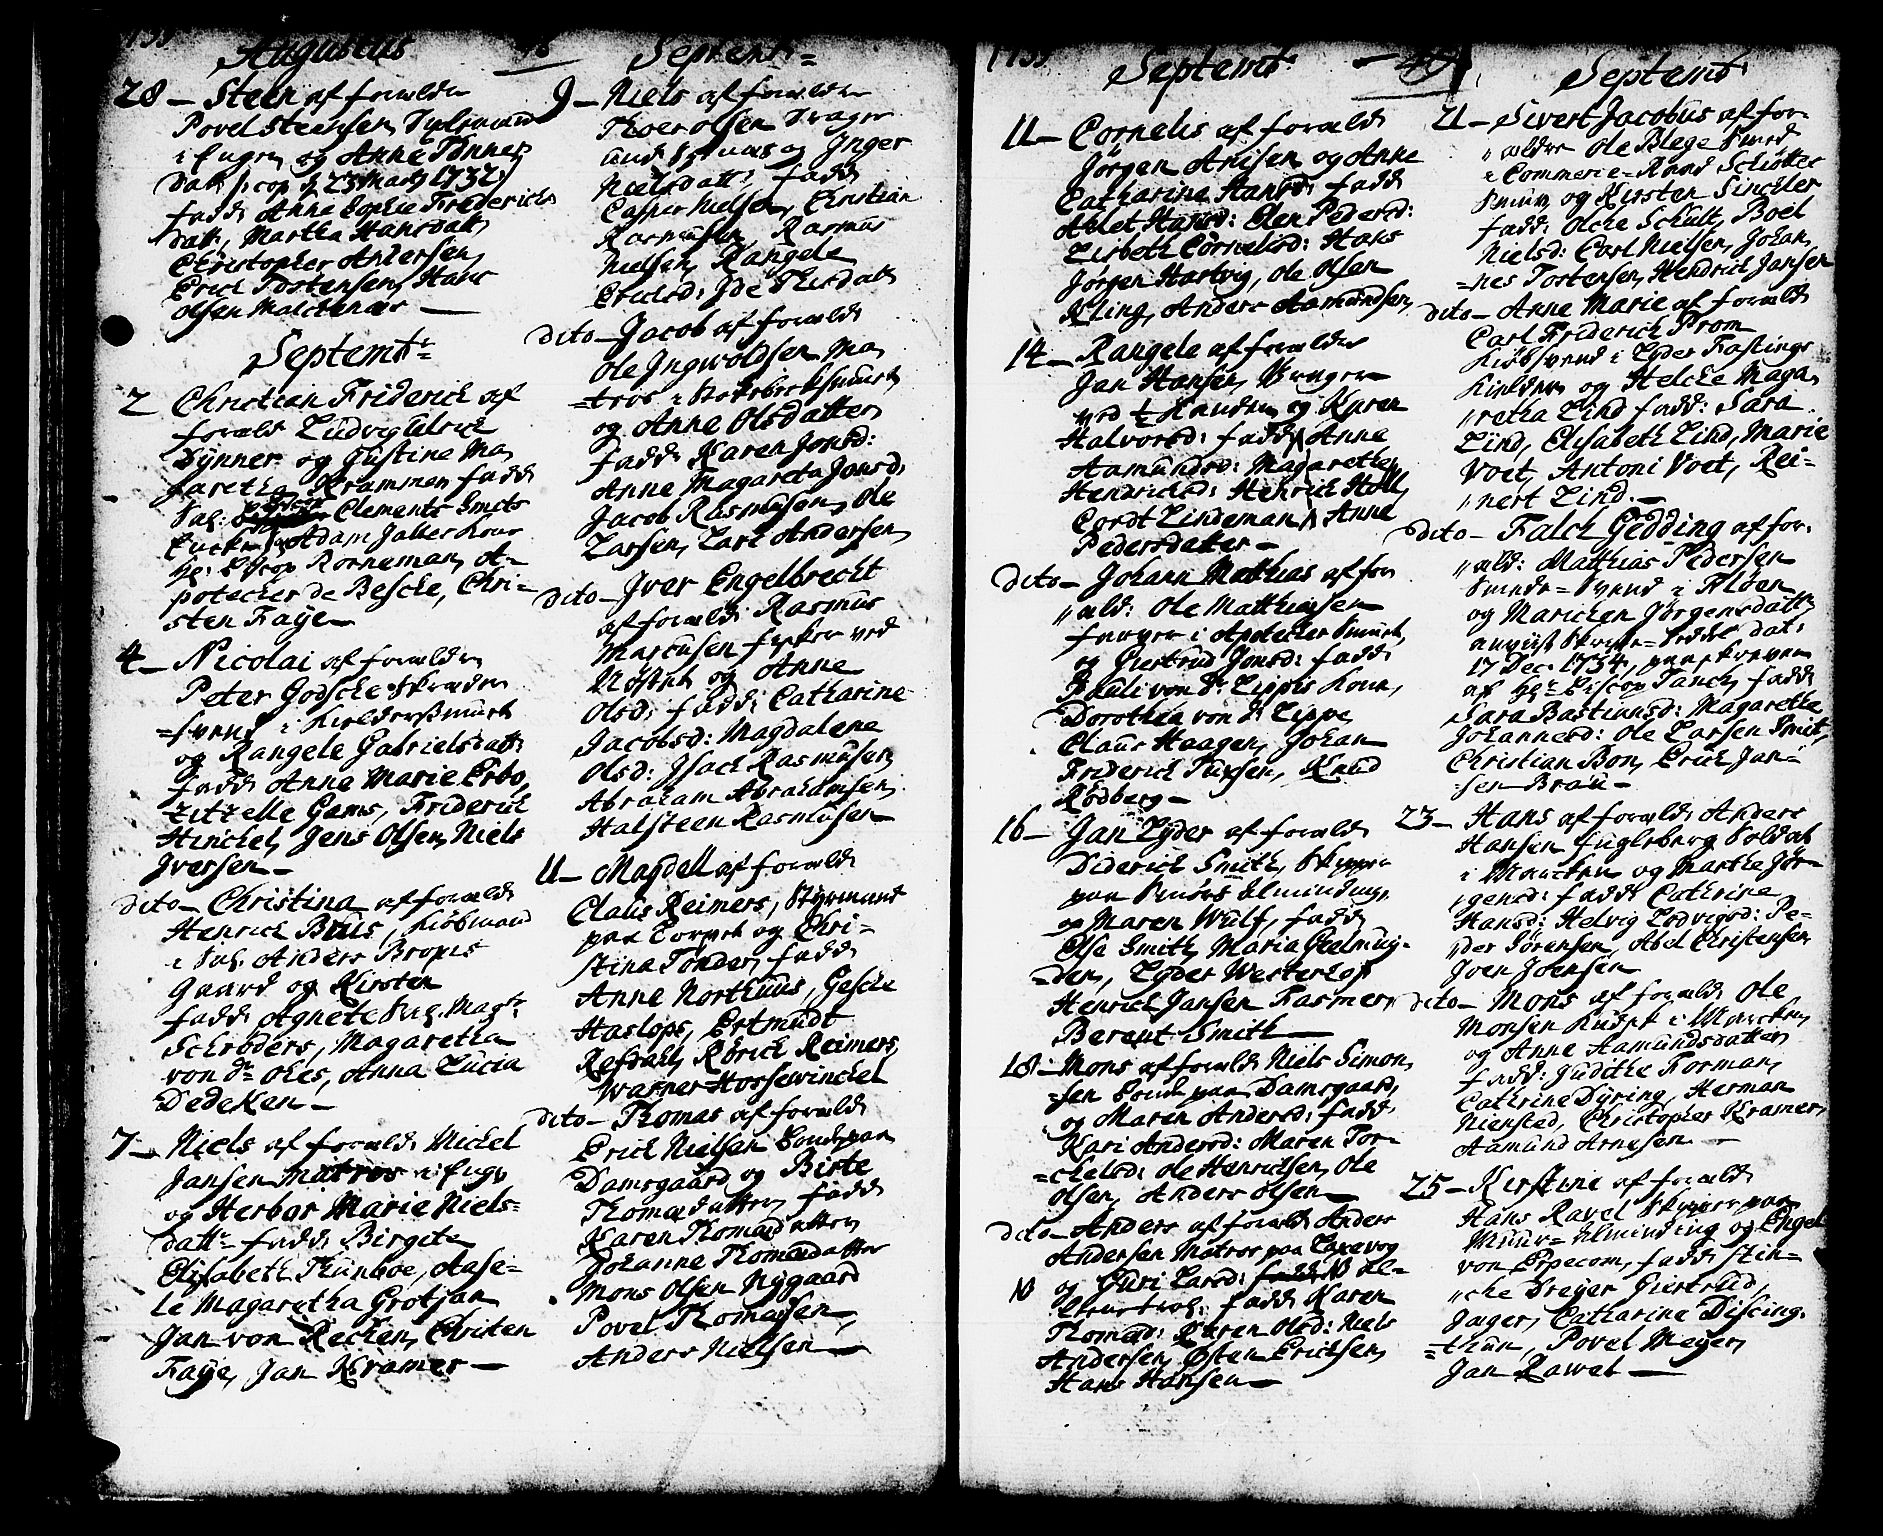 Augustus
28 – Steen af forældre
Povel Steensen
og Anne Tønnes
Datt: cop d 23 Martj 1732
fadd: Anna Sophie Friderichs
datt, Martha Hansdatt
Christopher Andersen,
Erich Tostensen, Hans
Olsen
Septembr:
2 Christian Friderich af
foræld: Ludvig Ulrich
Dynner og Justine Ma
garetha Krammer fadd
Sal: Clements Smits
Adam
Hr: Bscop Rorneman, A-
potecher de Besche, Chri-
sten Faye –
4 – Nicolai af forældre
Peter Godsche Skræder
=svend i
og Rangele Gabrielsdatt:
fadd: Anne Marie Erbo,
Zitzelle Gams, Friderich
Hinckel, Jens Olsen, Niels
Iversen –
dito – Christina af foræld:
Henrich Brüs, Kiøbmand
i Sal: Anders
Gaard og Kirsten
fadd: Agnete Sal. Magr:
Schrøders, Magaretha
von dr: Okes, Anna Lucia
Dedeken –
7 – Niels af foræld: Michel
Jansen Matros i Enge
og Herbor Marie Niels=
dattr fadd: Birgite
Elisabeth Thunboe, Aase=
le Magaretha Grotjan
Jan von Recken, Christen
Faye, Jan Kramer –
Septembr=
9 – Niels af forældre
Thoer Olsen Drager
og Inger
Nielsdatt: fadd:
Casper Nielsen, Christian
Rasmusen, Rasmus
Nielsen, Rangele
Erichsd: Ide Thisdatt:
dito – Jacob af foræld:
Ole Ingwoldsen Ma
=tros i
og Anne Olsdatter
fadd: Karen Jonsd:
Anne Magareta Jansd:
Jacob Rasmusen, Ole
Larsen, Lars Andersen
dito – Iver Engelbrecht
af foræld: Rasmus
Marcusen fisker ved
Nøstet og Anne
Olsd: fadd: Catharine
Jacobsd: Magdalene
Olsd: Isach Rasmusen,
Abraham Abrahamsen,
Halsteen Rasmusen –
11 – Magdell af foræld:
Claus Reimers, Styrmand
paa Torvet og Chri-
stina Tønder, fadd:
Anne Northuus, Gesche
Haslops, Ertmudt
Refdahl, Rørich Reimers,
Warner Hossewinckel
dito – Thomas af foræld:
Erich Nielsen Bonde paa
Damsgaard og Birte
Thomædatter, fadd:
Karen Thomædatter
Johanne Thomædatter
Mons Olsen Nygaard
Povel Thomæsen,
Anders Nielsen –
Septembr
11 – Cornelis af foræld:
Jørgen Arisen og Anne
Catharine Hansd: fadd:
Adlet Hansd: Elen Pedersd:
Lisbeth Cornelsd: Hans
Jørgen Hartvig, Ole Olsen
Kling, Anders Aamundsen,
14 – Rangele af forældre
Jan Hansen, Drager
ved og Karen
Halvorsd: fadd: Anne
Aamundsd: Magarethe
Hendrichsd: Henrich Holl,
Cordt Lindeman, Anne
Pedersdatter –
dito – Johann Mathias af for
"æld: Ole Matthiæsen
farver i Apotecher
og Giertrud Jonsd: fadd:
Pauli von Dr Lippes kone,
Dorothea von dr Lippe
Claus Haagen, Johan
Friderich Tuxsen, Knud
Rødberg –
16 – Jan Lyder af foræld:
Diderich Smith, Skipper
paa Muurs Elmindinge,
og Maren Wulf, fadd:
Else Smith, Maria Geelmuy-
=den, Lyder Westerhof
Henrich Jansen Fasmer,
Berent Smith –
18 – Mons af foræld: Niels Simon,
=sen Bonde paa Damsgaard,
og Maren Andersd: fadd:
Kari Andersd: Maren Tor-
=chelsd: Ole Henrichsen, Ole
Olsen, Anders Olsen –
dito – Anders af foræld: Anders
Andersen Matros paa Laxevog
og Guri Larsd:
fadd: Karen
Thomæsd: Karen Olsd: Niels
Andersen, Østen Erichsen,
Hans Hansen –
49
Septembr
21 – Sivert Jacobus af for-
"ældre Ole Blege Smed
i Commerce-Raad Schiøtter
Smuw, og Kirsten Sinckler
fadd: Olche Schult, Boel
Nielsd: Carl Nielsen, Johan,
=nes Tostensen, Hendrich Jansen
dito – Anne Marie af foræld:
Carl Friderich Prom
Kiøbsvend i Lyder Fastings
Kielder og Helche Maga,
"retha Lind fadd: Sara
Lind, Elisabeth Lind, Marie
Voet, Antoni Voet, Rei-
"nert Lind. –
dito – Falch Gedding af for,
"æld: Matthias Pedersen
Smede-Svend i Kloen
og Marichen Jørgensdatt:
angivet Skrifte-Seddel dat:
17 Dec: 1734, paaskreven
af Hr: Biscop Tanch, fadd:
Sara Bastiansd: Magarethe
Johannesd: Ole Larsen Smit,
Christian Bon, Erich Jan-
"sen Brau –
23 – Hans af foræld: Anders
Hansen Fugleberg Soldat
i Marcken og Marthe Jør-
"gensd: fadd: Cathrine
Hansd: Helvig Lodvigsd: Pe-
"der Sørensen, Abel Christensen
Joen Joensen
dito – Mons af foræld: Ole
Monsen Kudsk i Marcken,
og Anne Aamundsdatter
fadd: Judithe Forman,
Cathrine Dyring, Herman
Niensted, Christopher Kramer,
Aamund Arnesen –
25 – Kirstine af foræld:
Hans Ravel Skipper paa
Muur-Elminding og Engel
von Erpecom, fadd: Stin-
"che Dreyer, Giertrud,
Jæger, Catharine Discing.
=thun, Povel Meyer,
Jan Rawel –